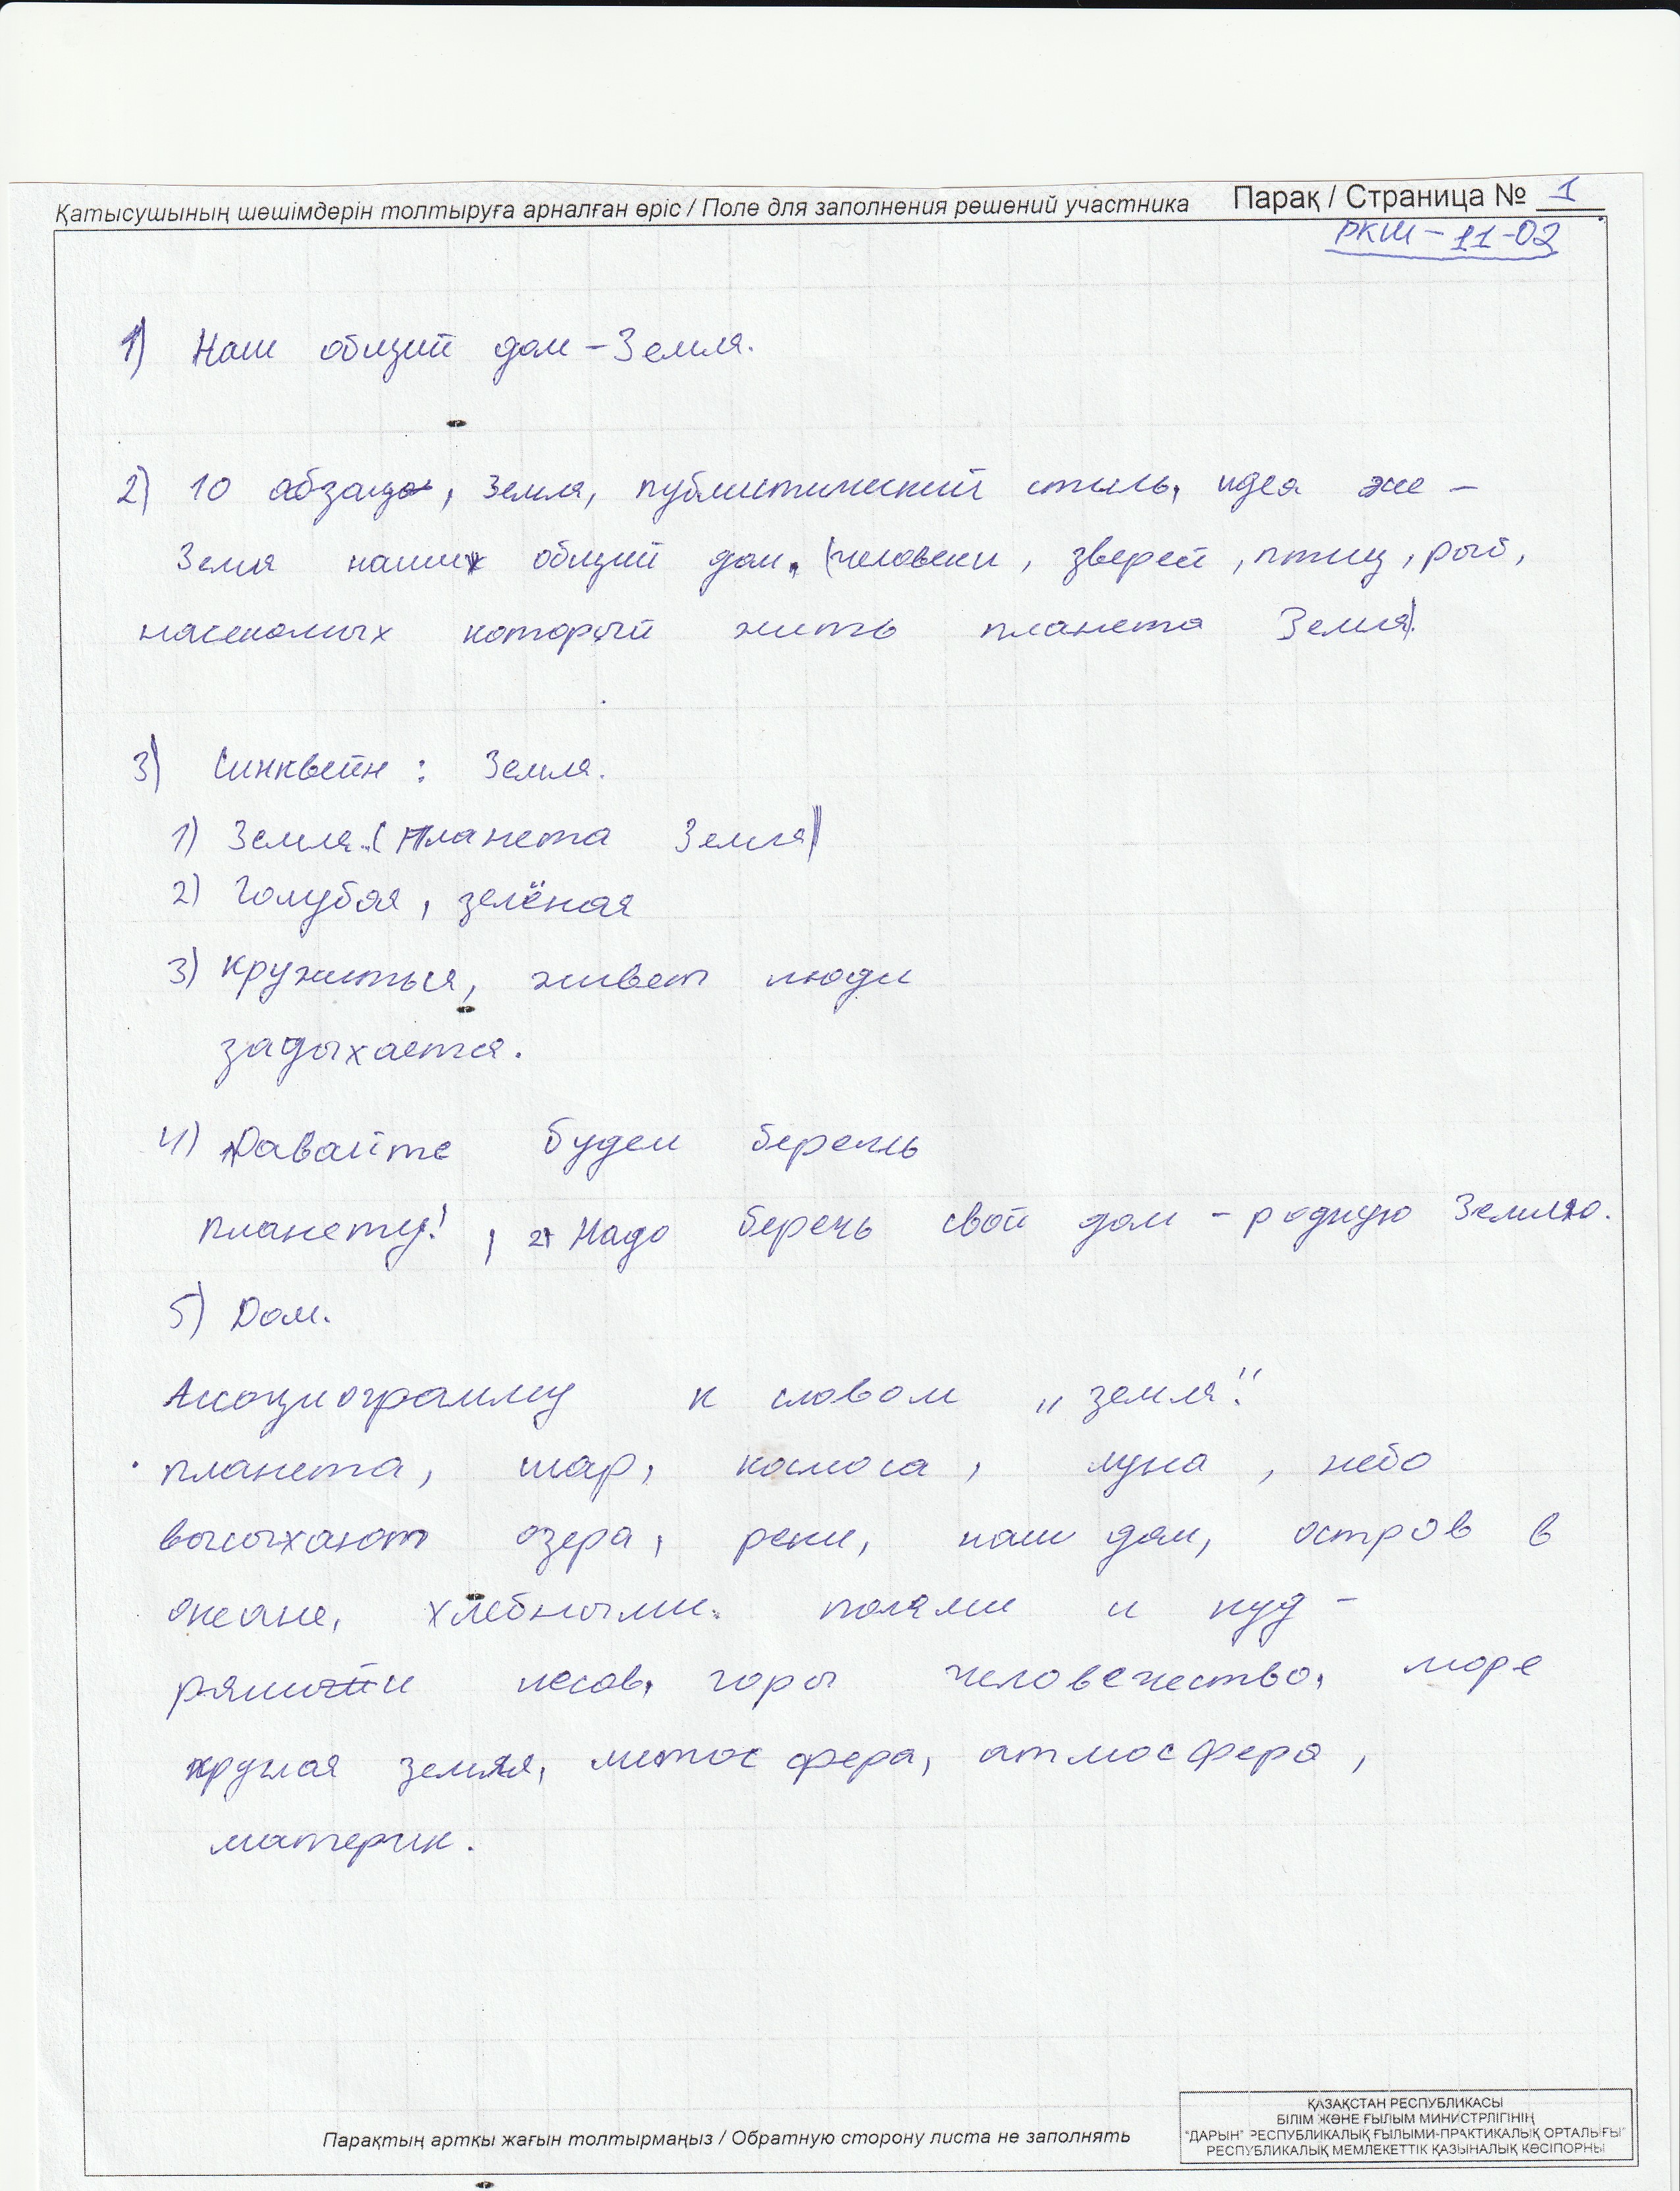 Қатысушының шешімдерін толтыруға арналған өріс / Поле для заполнения решений участника Парақ / Страница № 1
РКШ-11-02
1) Наш общий дом - Земля.
2) 10 абзац, Земля, публистический стиль, идея же -
Земя наших общий дом. (человеки, зверей, птиц, рыб,
насекомых который жить планета Земля).
3) Синквейн: Земля.
1) Земля. (Планета Земля)
2) Голубая, зелёная
3) Кружиться, живет люди
задыхается.
4) Давайте будем беречь
планету! , 2) Надо беречь свой дом - родную Землю.
5) Дом.
Ассоциограмму к словом "земля".
планета, шар, космоса, луна, небо
высыхают озера, реки, наш дом, остров в
океане, хлебными полями и куд-
рями лесов, горы человечество, море
круглая земля, литосфера, атмосфера,
материк.
Парақтың артқы жағын толтырмаңыз / Обратную сторону листа не заполнять
ҚАЗАҚСТАН РЕСПУБЛИКАСЫ
БІЛІМ ЖӘНЕ ҒЫЛЫМ МИНИСТРЛІГІНІҢ
"ДАРЫН" РЕСПУБЛИКАЛЫҚ ҒЫЛЫМИ-ПРАКТИКАЛЫҚ ОРТАЛЫҒЫ"
РЕСПУБЛИКАЛЫҚ МЕМЛЕКЕТТІК ҚАЗЫНАЛЫҚ КӘСІПОРНЫ